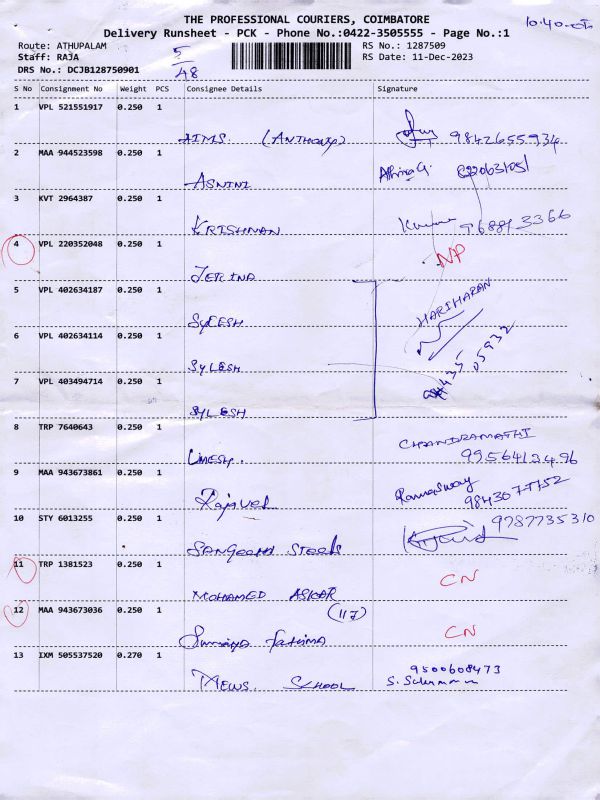 THE PROFESSIONAL COURIERS, COIMBATORE
10.40
Delivery Runsheet - PCK - Phone No.:0422-3505555 - Page No.:1
Route: ATHUPALAM
RS No.: 1287509
Staff: RAJA
5/48
RS Date: 11-Dec-2023
DRS No.: DCJB128750901
S No Consignment No Weight PCS Consignee Details Signature
1 VPL 521551917 0.250 1
AIMS. (ANTHONY) 9842655934
2 MAA 944523598 0.250 1
ASNINI
3 KVT 2964387 0.250 1
KRISHNAN
4 VPL 220352048 0.250 1
NP
5 VPL 402634187 0.250 1
SYLESH
HARIHARAN
6 VPL 402634114 0.250 1
SYLESH
05932
7 VPL 403494714 0.250 1
SYLESH
8 TRP 7640643 0.250 1
UMESH.
CHANDRAMATHI
9956412496
9 MAA 943673861 0.250 1
Rajavel
9843077752
10 STY 6013255 0.250 1
SANGEETHA STEELS
9787735310
11 TRP 1381523 0.250 1
MOHAMED ASKAR
CN
12 MAA 943673036 0.250 1
(117)
Sumaiya Fathima
CN
13 IXM 505537520 0.270 1
MEWS. SCHOOL
9500608473